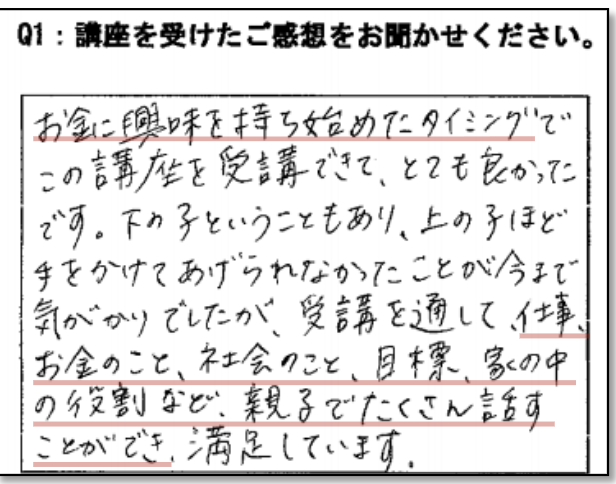 Q1：講座を受けたご感想をお聞かせください。
お金に興味を持ち始めたタイミングで
この講座を受講できて、とても良かった
です。下の子ということもあり、上の子ほど
手をかけてあげられなかったことが今まで
気がかりでしたが、受講を通して、仕事、
お金のこと、社会のこと、目標、家の中
の役割など、親子でたくさん話す
ことができ、満足しています。